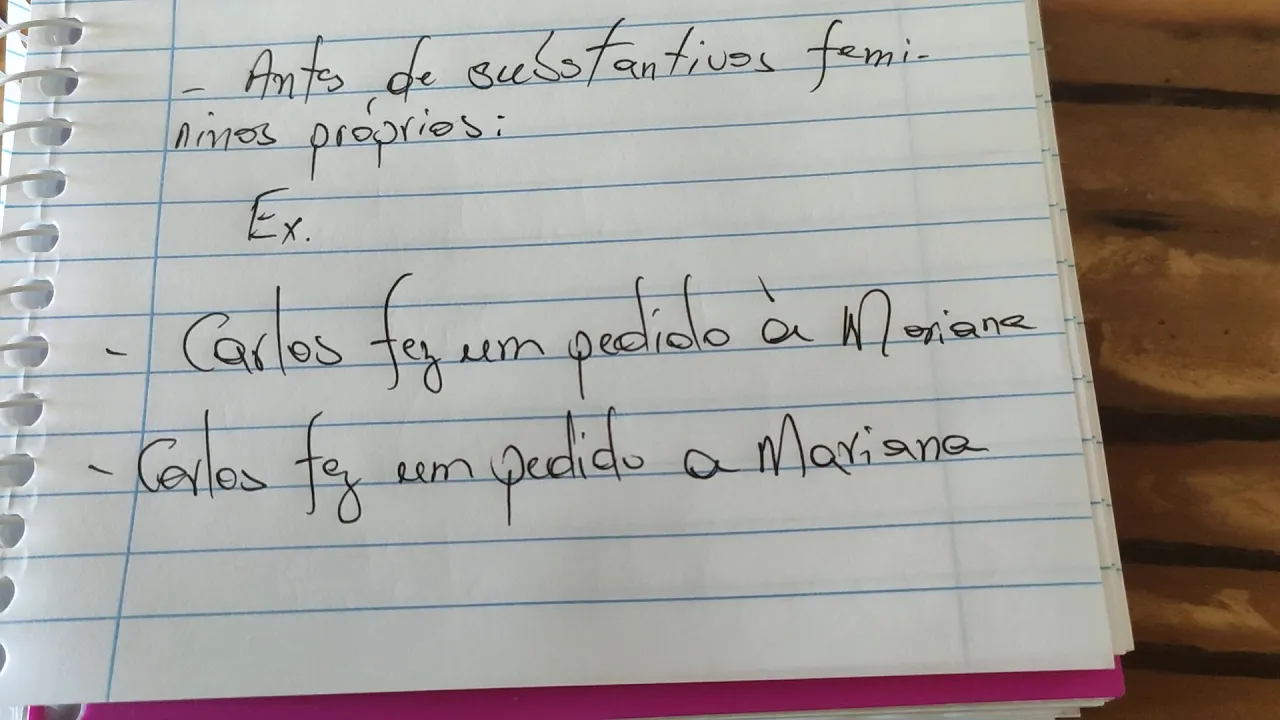 - Antes de substantivos femi-
ninos próprios:
Ex.
- Carlos fez um pedido à Mariana
- Carlos fez um pedido a Mariana